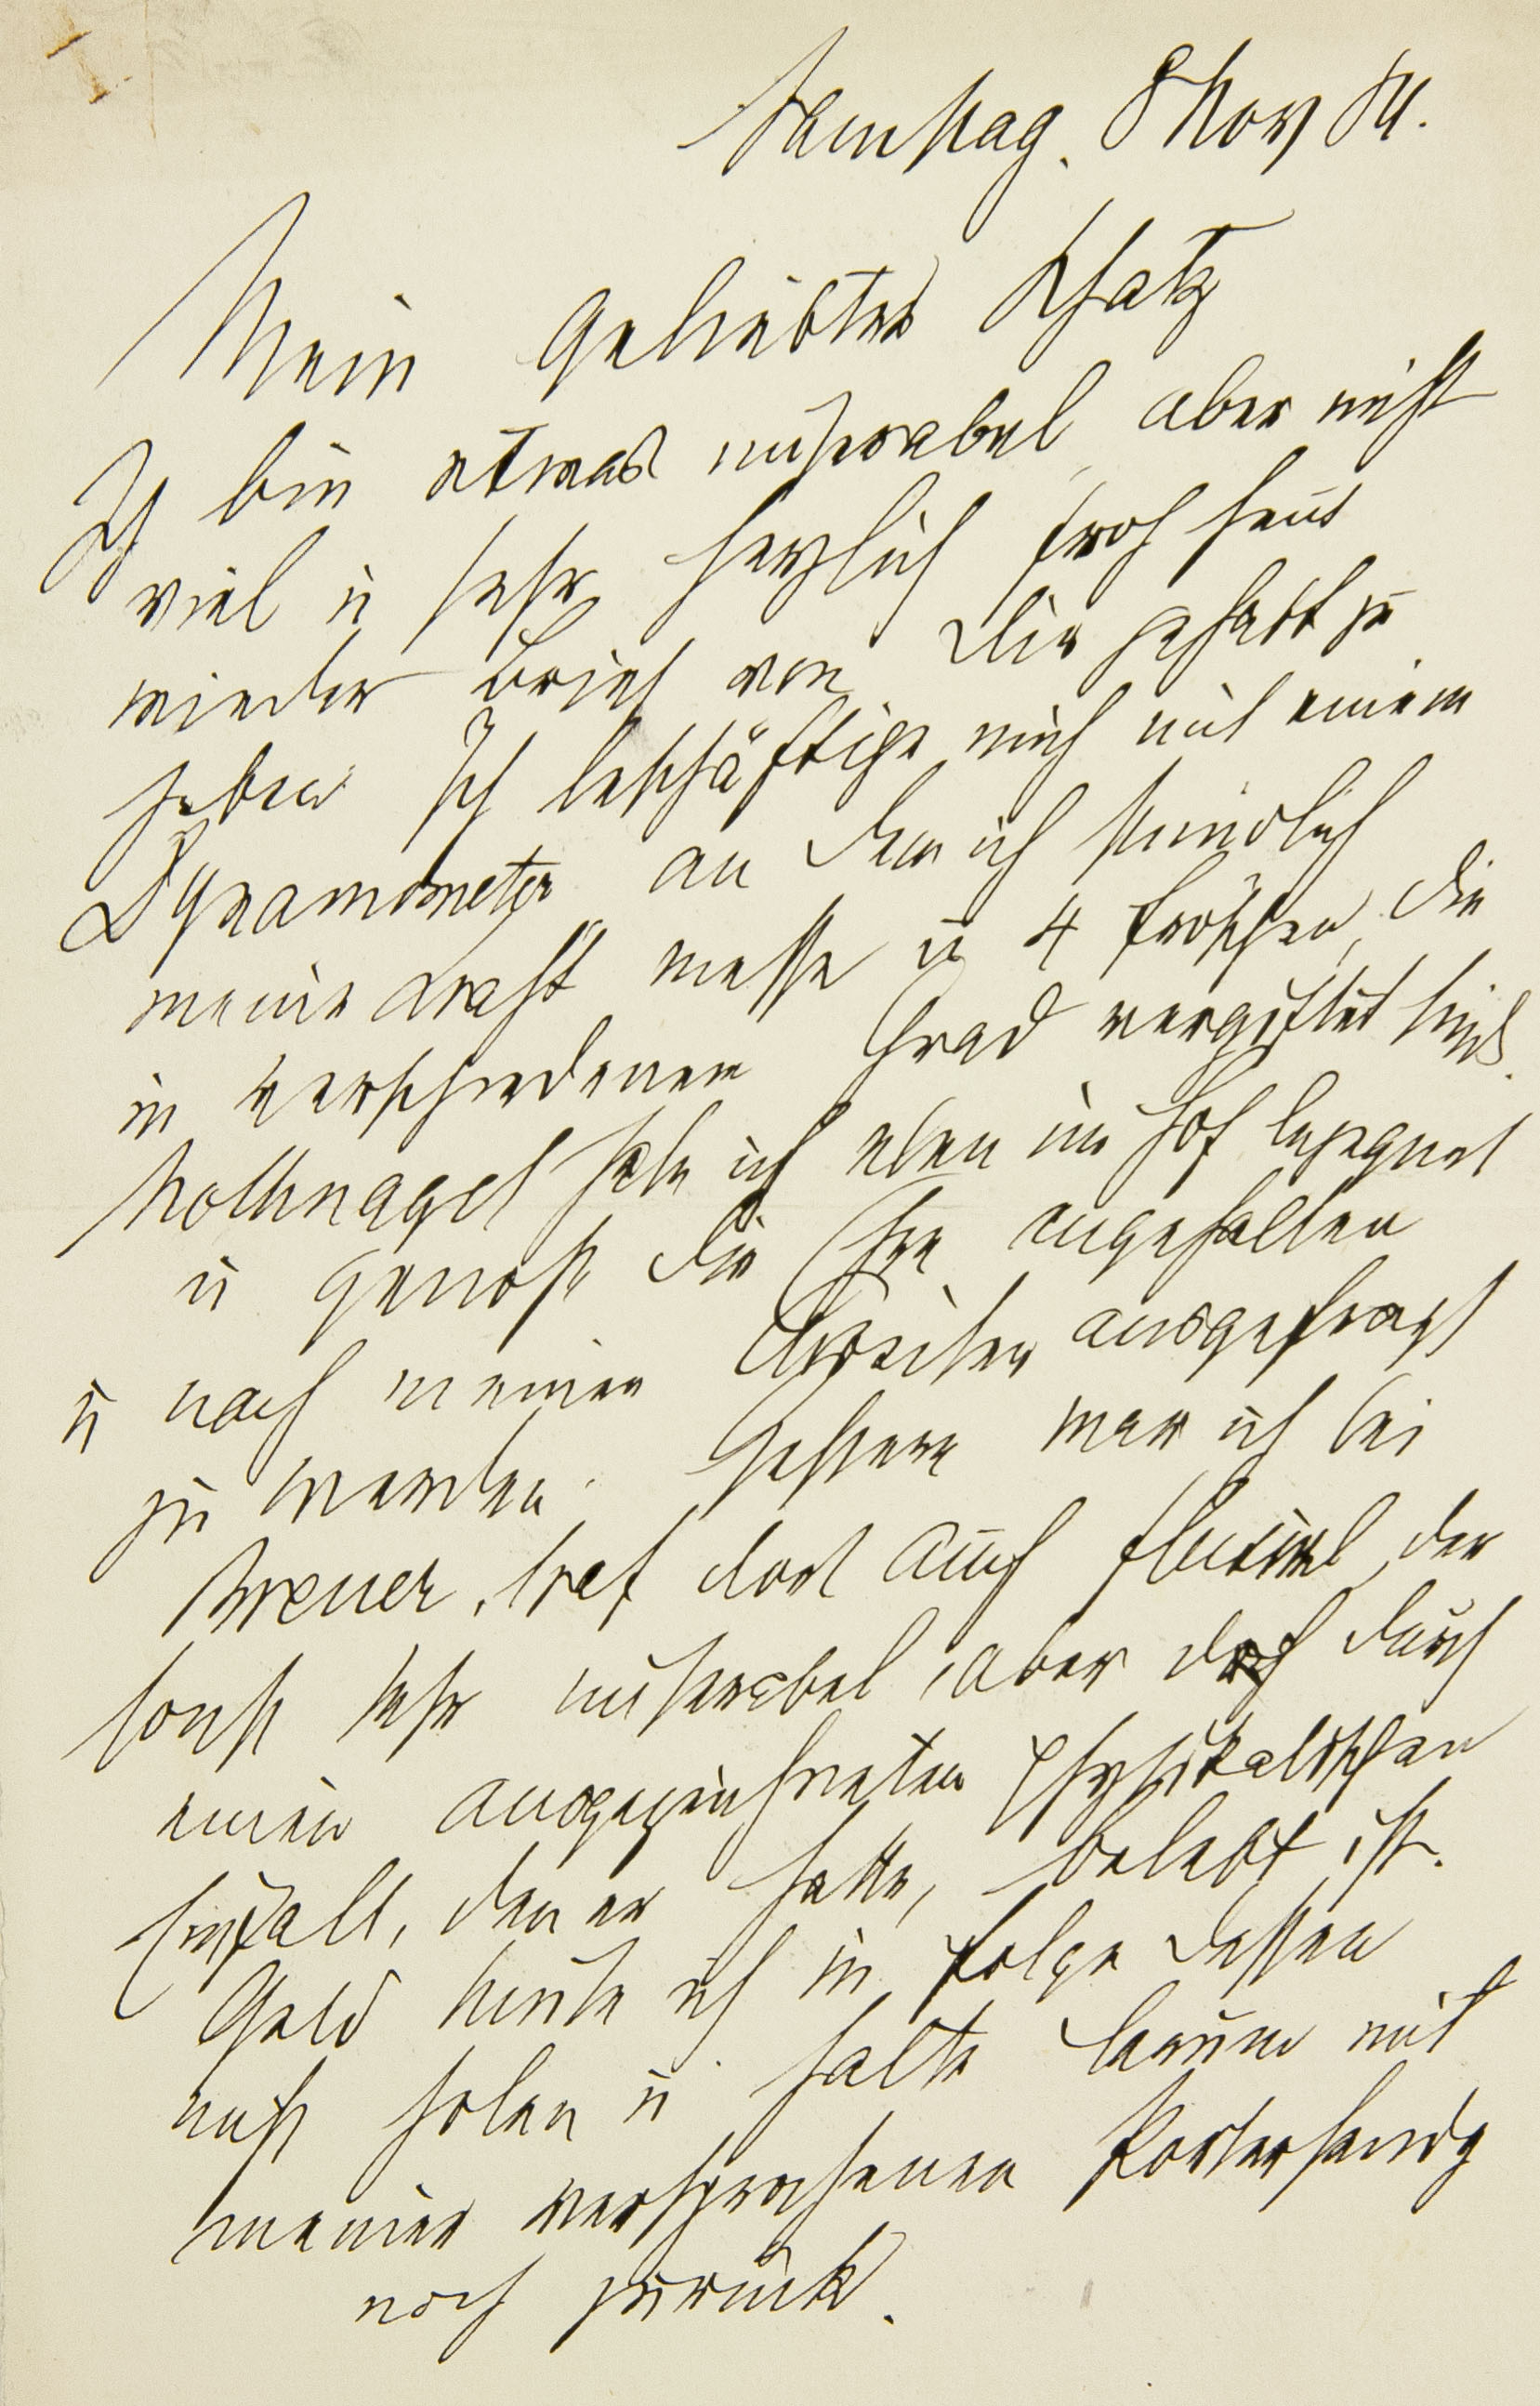 Samstag. 8 Nov 84.
Mein geliebter Schatz
Ich bin etwas miserabel, aber nicht
viel u sehr herzlich froh heut
wieder Brief von Dir gehabt zu
haben. Ich beschäftige mich mit einem
Dynamometer an dem ich stündlich
meine Kraft messe u 4 Fröschen, die
in verschiedenem Grad vergiftet sind.
Nothnagel habe ich eben im Hof begegnet
u genoß die Ehre angehalten
u nach meinen Arbeiten ausgefragt
zu werden. Gestern war ich bei
Breuer, traf dort auch Fleischl, der
sonst sehr miserabel, aber doch durch
einen ausgezeichneten physikalischen
Einfall, den er hatte, belebt ist.
Geld konnte ich in Folge dessen
nicht holen u halte darum mit
meiner versprochenen
noch zurück.